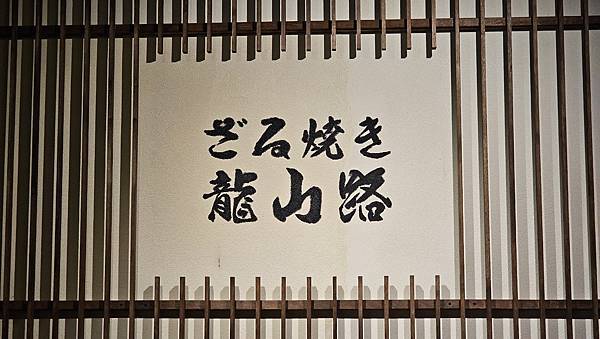 ざる焼き
龍山路